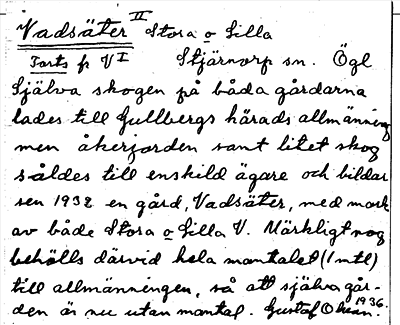 Vadsäter II Stora o Lilla
Forts fr VI Stjärnorp sn. Ögl
Själva skogen på båda gårdarna
lades till Gullbergs härads allmänning
men åkerjorden samt litet skog
såldes till enskild ägare och bildar
sen 1932 en gård, Vadsäter, med mark
av både Stora o Lilla V. Märkligt nog
behölls därvid hela mantalet (1 mtl)
till allmänningen, så att själva går-
den är nu utan mantal. Gustaf Ohsson. 1936.